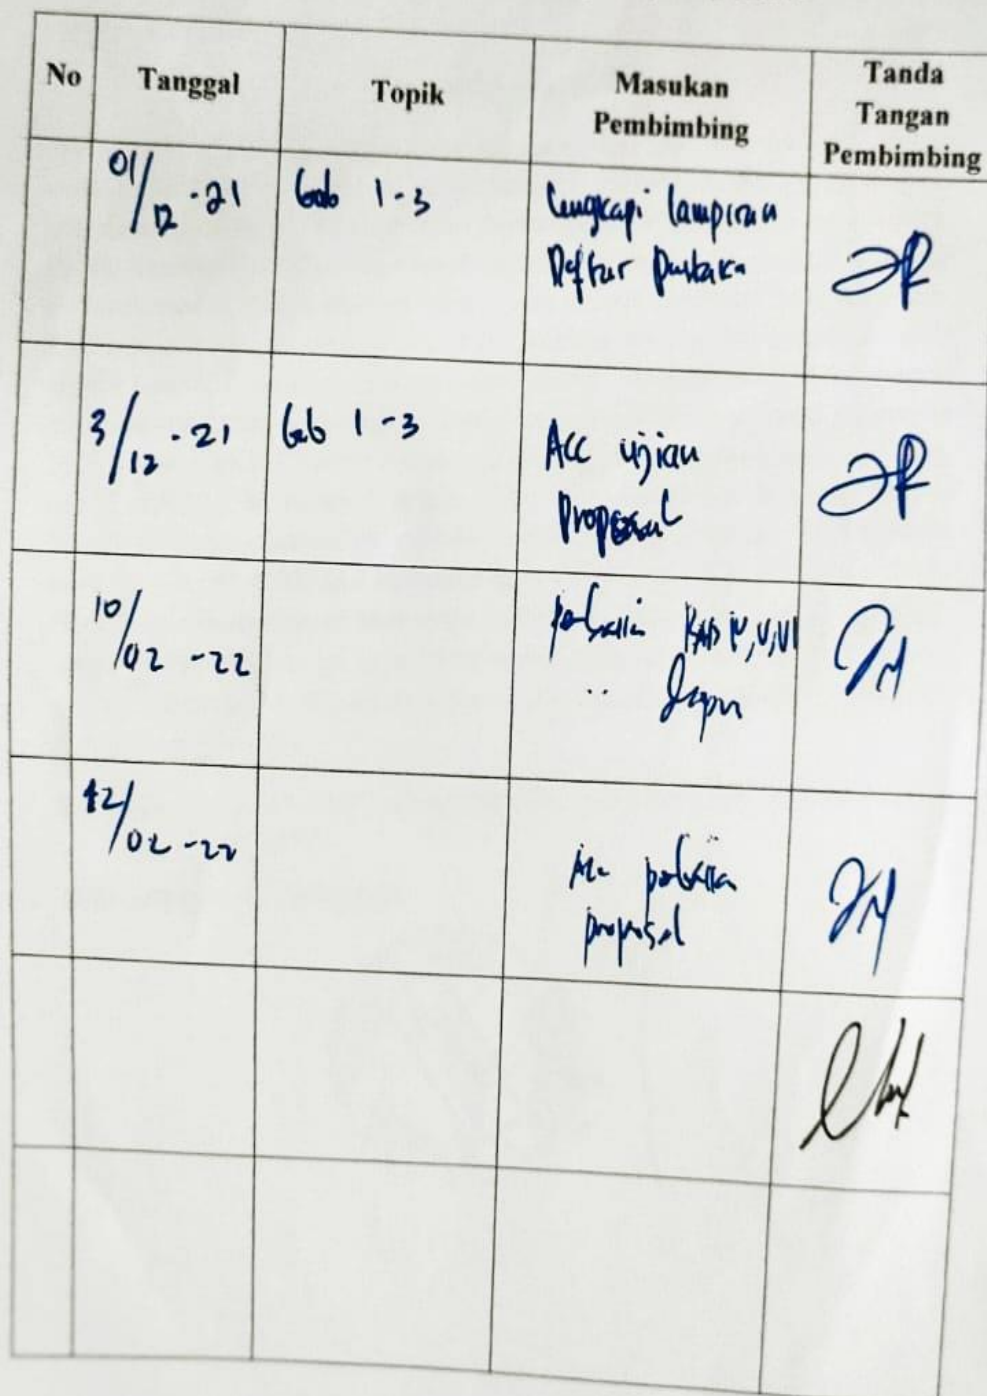 No Tanggal Topik Masukan Pembimbing Tanda Tangan Pembimbing
01/12 -21 bab 1-3 Lengkapi lampiran
Daftar Pustaka
3/12 -21 bab 1-3 Acc ujian
Proposal
10/02 -22 perbaiki BAB IV, V, VI
12/02 -22 Acc perbaikan
proposal